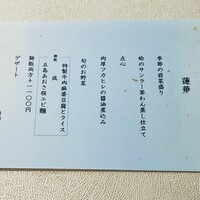 蓮華
季節の前菜盛り
蛤のサンラー茶わん蒸し仕立て
点心
肉厚フカヒレの醤油煮込み
旬のお野菜
特製牛肉麻婆豆腐とライス
麺飯 或
五島あおさ桜エビ麺
麺飯両方＋一一〇〇円
デザート